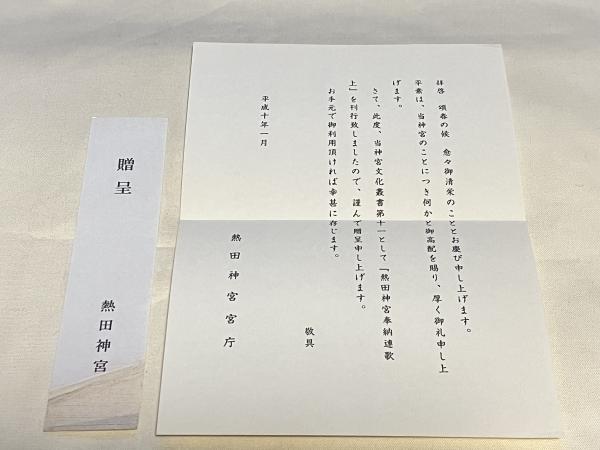 拝啓 頌春の候 愈々御清栄のこととお慶び申し上げます。
平素は、当神宮のことにつき何かと御高配を賜り、厚く御礼申し上
げます。
さて、此度、当神宮文化叢書第十一として『熱田神宮奉納連歌
上』を刊行致しましたので、謹んで贈呈申し上げます。
お手元で御利用頂ければ幸甚に存じます。
敬具
平成十年一月
熱田神宮宮庁
贈呈
熱田神宮